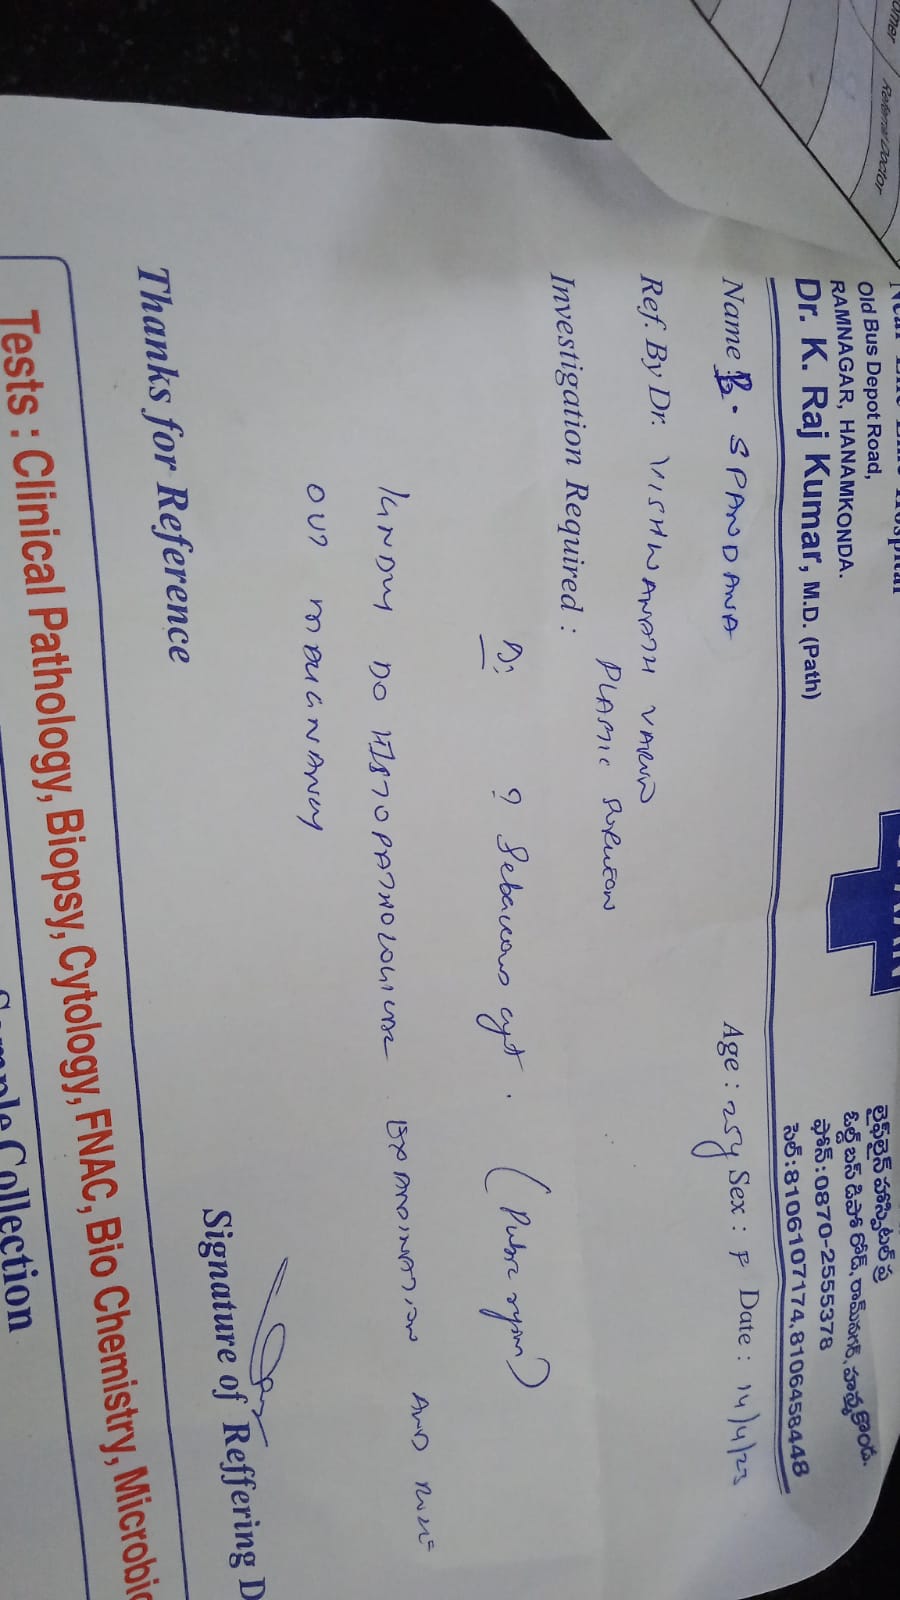 Old Bus Depot Road,
RAMNAGAR, HANAMKONDA.
Dr. K. Raj Kumar, M.D. (Path)
లైఫ్‌లైన్ హాస్పిటల్ ప్ర
ఓల్డ్ బస్ డిపో రోడ్, రామ్‌నగర్, హన్మకొండ.
ఫోన్ : 0870-2555378
సెల్ : 8106107174, 8106458448
Name B. SPANDANA Age : 25y Sex : F Date : 14/4/23
Ref. By Dr. VISHWANATH VARUN
PLASTIC SURGEON
Investigation Required :
D: ? Sebaceous cyst. (Pubic region)
KINDLY DO HISTOPATHOLOGICAL EXAMINATION AND RULE
OUT MALIGNANCY
Thanks for Reference
Signature of Reffering D
Tests : Clinical Pathology, Biopsy, Cytology, FNAC, Bio Chemistry, Microbio
Sample Collection
Referral Doctor